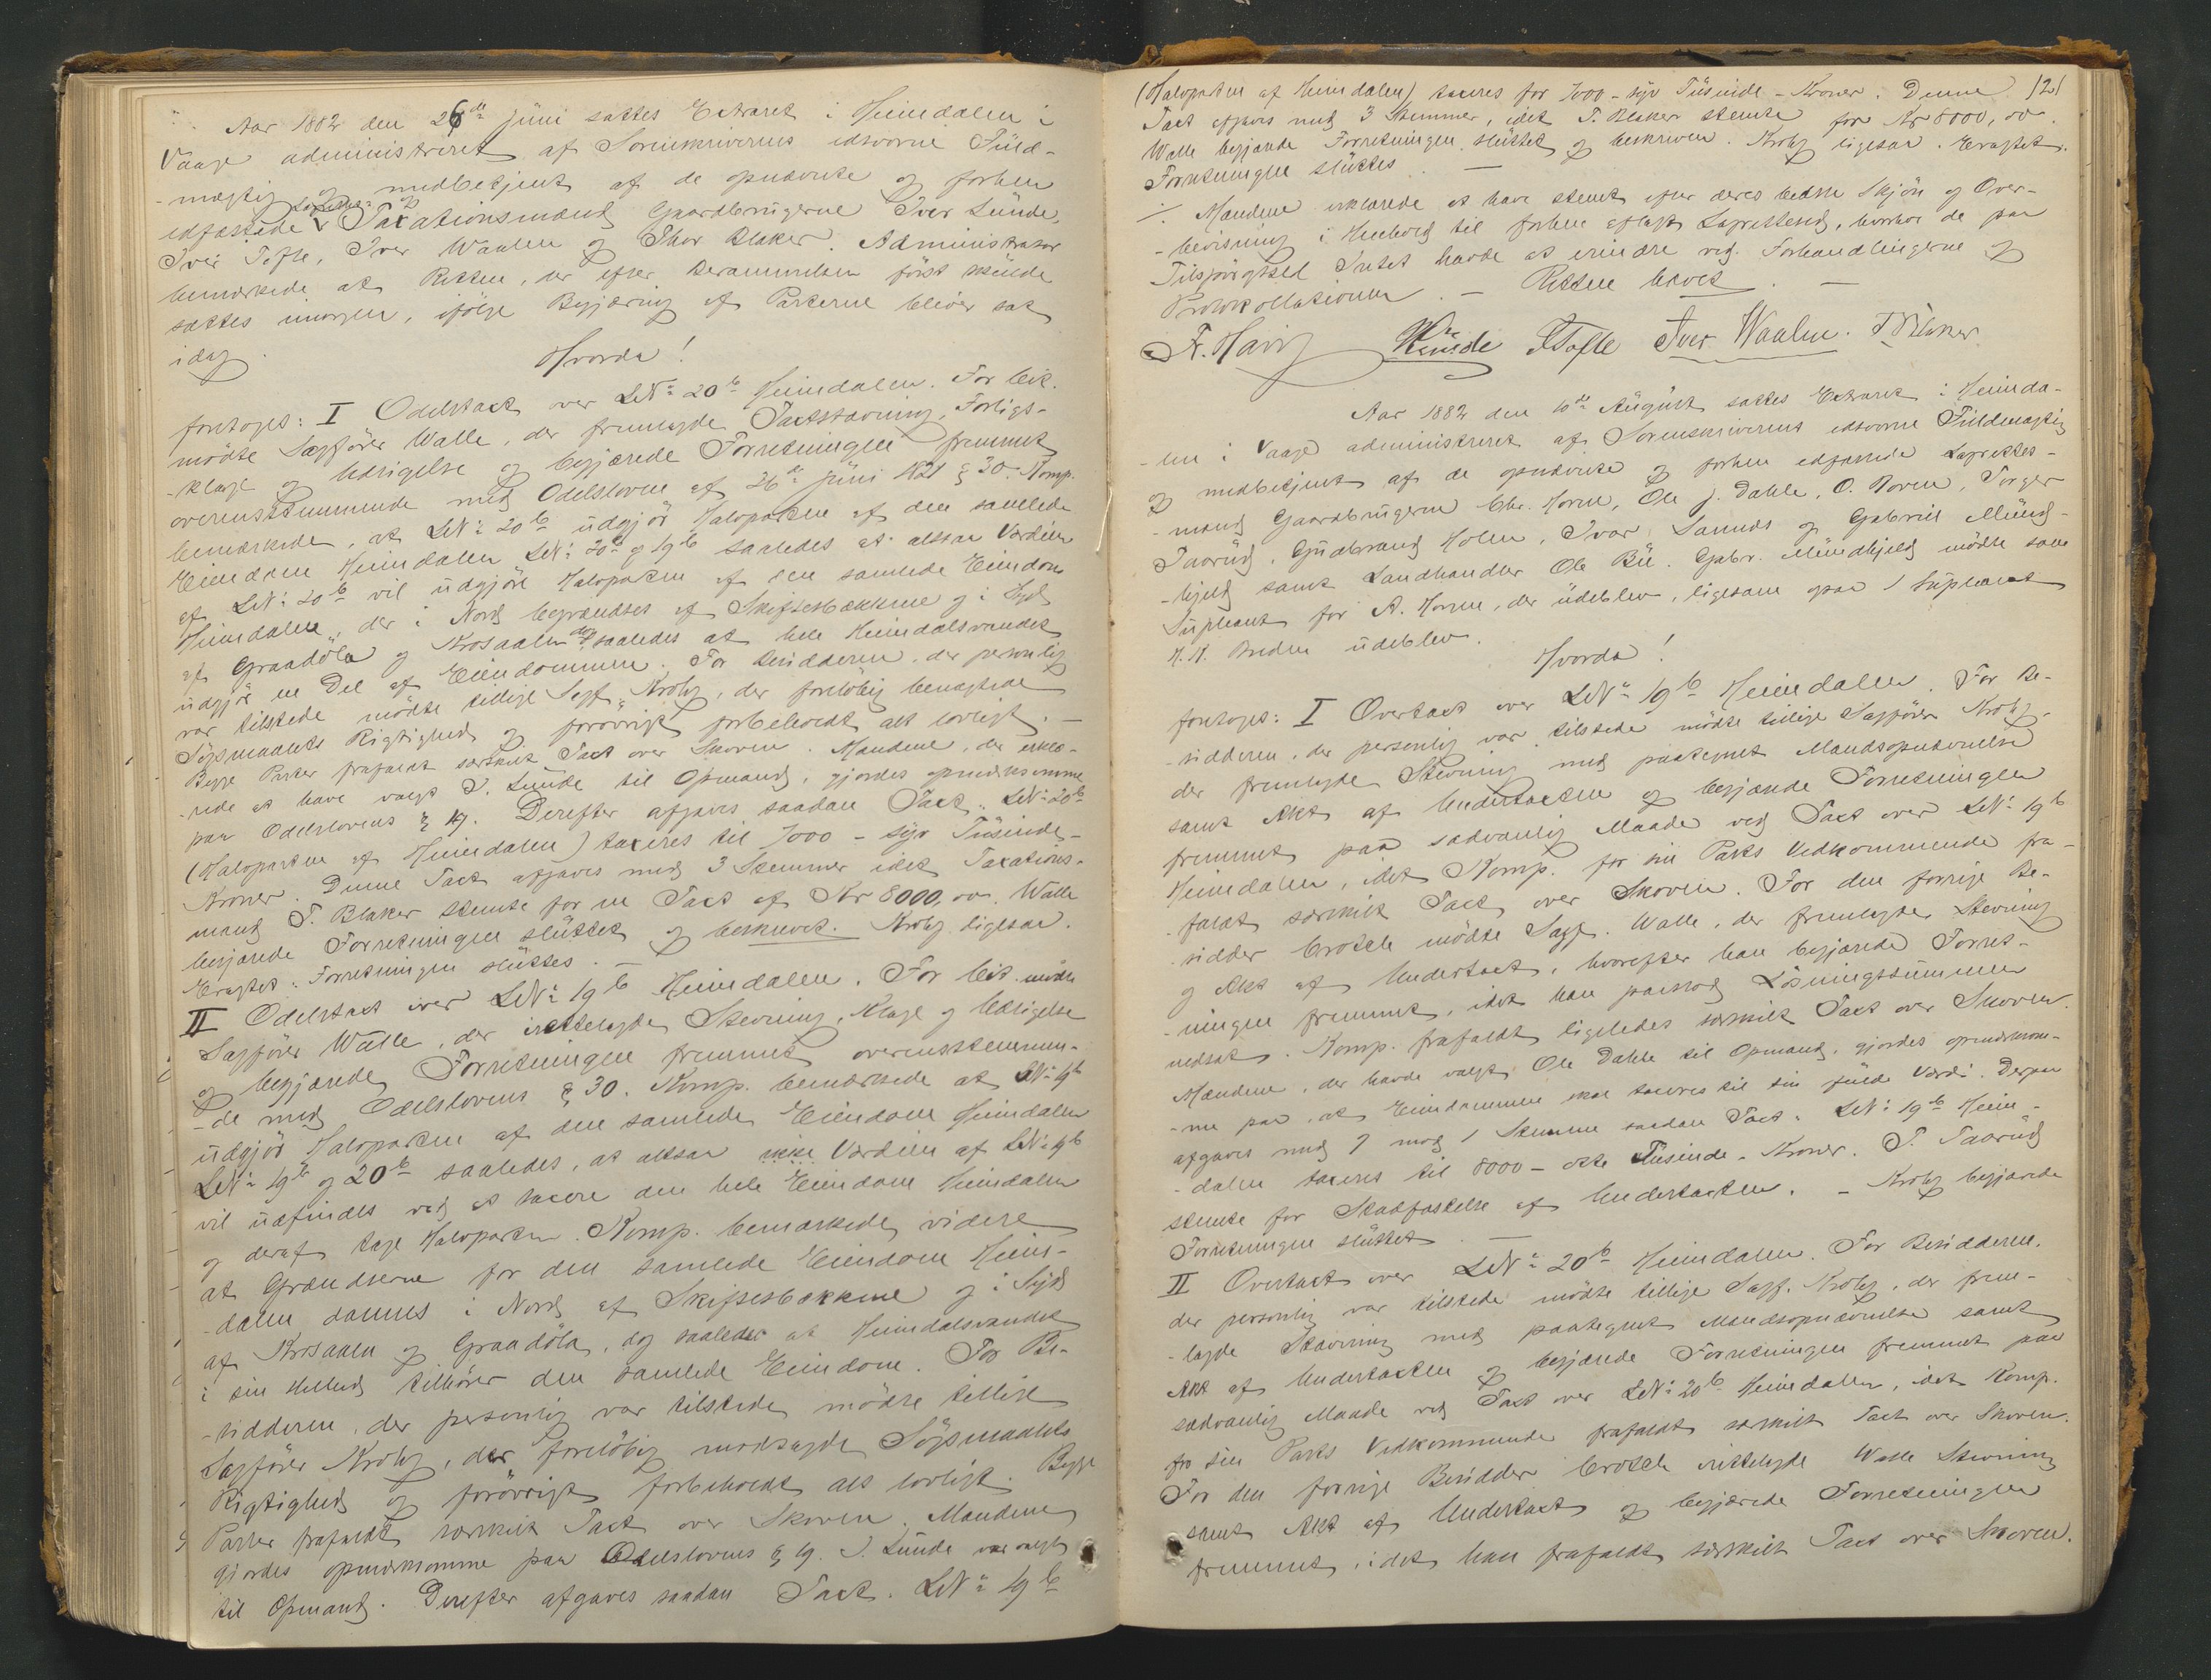 Aar 1882 den 26de Juni sattes Extraret i Heimdalen i
Vaage administreret af Sorenskriverens edsvorne Fuld-
-mægtig og medbetjent af de opnævnte og forhen
edfæstede Lagrettes- og Taxationsmænd Gaardbrugerne Iver Lunde,
Iver Tofte, Iver Waalen og Thor Blaker. Administrator
bemærkede at Retten, der efter Berammelsen først skulde
sættes imorgen, ifølge Begjæring af Parterne bliver sat
idag.
Hvorda!
foretoges: I Odelstaxt over LN: 20b Heimdalen. For Cit.
mødte Sagfører Walle, der fremlagde Taxtstævning, Forligs-
-klage og Udsigelse og begjærede Forretningen fremmet
overensstemmende med Odelsloven af 26de Juni 1821 § 30. Komp.
bemærkede, at LN: 20b udgjør Halvparten af den samlede
Eiendom Heimdalen LN: 20b og 19b saaledes at altsaa Værdien
af LN: 20b vil udgjøre Halvparten af den samlede Eiendom
Heimdalen, der i Nord begrændses af Skiftesbækkene og i Syd
af Graadøla og Krosaalen dog saaledes at hele Heimdalsvandet
udgjør en Del af Eiendommen. For Besidderen, der personlig
var tilstede mødte tillige Sagf. Krohg, der foreløbig benægtede
Søgsmaalets Rigtighed og forøvrigt forbeholdt alt lovligt. —
Begge Parter frafaldt særskilt Taxt over Skoven. Mændene, der erklæ-
-rede at have valgt I. Lunde til Opmand, gjordes opmærksomme
paa Odelslovens § 19. Derefter afgaves saadan Taxt: LN: 20b
(Halvparten af Heimdalen) taxeres til 7000 – syv Tusinde –
Kroner. Denne Taxt afgaves med 3 Stemmer idet Taxations-
mand T. Blaker stemte for en Taxt af Kr 8000,00. Walle
begjærede Forretningen sluttet og beskrevet. Krohg ligesaa.
Eragtet: Forretningen sluttes. —
II Odelstaxt over LN: 19b Heimdalen. For Cit. mødte
Sagfører Walle, der irettelagde Stevning, Klage og Udsigelse
og begjærede Forretningen fremmet overensstemmen-
-de med Odelslovens § 30. Komp. bemærkede at LN: 19b
udgjør Halvparten af den samlede Eiendom Heimdalen
LN: 19b og 20b saaledes, at altsaa ikke Værdien af LN: 19b
vil udfindes ved at taxere den hele Eiendom Heimdalen
og deraf tage Halvparten. Komp. bemærkede videre
at Grændserne for den samlede Eiendom Heim-
-dalen dannes i Nord af Skiftesbækkene og i Syd
af Krosaalen og Graadøla, dog saaledes at Heimdalsvandet
i sin Helhed tilhører den samlede Eiendom. For Be-
-sidderen, der personlig var tilstede mødte tillige
Sagfører Krohg, der foreløbig modsagde Søgsmaalets
Rigtighed og forøvrigt forbeholdt alt lovligt. Begge
Parter frafaldt særskilt Taxt over Skoven. Mændene
gjordes opmærksomme paa Odelslovens § 19. I. Lunde var valgt
til Opmand. Derefter afgaves saadan Taxt: LN: 19b
(Halvparten af Heimdalen) taxeres for 7000 – syv Tusinde – Kroner. Denne 121
Taxt afgaves med 3 Stemmer, idet T. Blaker stemte for Kr 8000,00.
Walle begjærede Forretningen sluttet og beskreven. Krohg ligesaa. Eragtet:
Forretningen sluttes. —
⁒ Mændene erklærede at have stemt efter deres bedste Skjøn og Over-
-bevisning i Henhold til forhen aflagt Lagrettesed, hvorhos de paa
Tilspørgsel Intet havde at erindre ved Forhandlingerne og
Protokollationen. — Retten hævet. —
Fr. Harig Lunde ITofte Iver Waalen. TBlaker
Aar 1882 den 10de August sattes Extraret i Heimda-
-len i Vaage administreret af Sorenskriverens edsvorne Fuldmægtig
og medbetjent af de opnævnte og forhen edfæstede Lagrettes-
-mænd Gaardbrugerne Chr. Horne, Ole J. Dahle, O. Roven, Torger
Taarud, Gudbrand Holen, Ivar Sannæs og Gabriel Mund-
-hjeld samt Landhandler Ole Bu. Gabr. Mundhjeld mødte som
Supleant for A. Horne, der udeblev, ligesom ogsaa 1 Supleant
H. H. Breden udeblev.
Hvorda!
foretoges: I Overtaxt over LN: 19b Heimdalen. For Be-
-sidderen, der personlig var tilstede mødte tillige Sagfører Krohg
der fremlagde Stevning med paategnet Mandsopnævnelse
samt Akt af Undertaxten og begjærede Forretningen
fremmet paa sædvanlig Maade ved Taxt over LN: 19b
Heimdalen, idet Komp. for sin Parts Vedkommende fra-
-faldt særskilt Taxt over Skoven. For den forrige Be-
-sidder Crotch mødte Sagf. Walle, der fremlagde Stevning
og Akt af Undertaxt, hvorefter han begjærede Forret-
-ningen fremmet, idet han paastod Løsningssummen
nedsat. Komp. frafaldt ligeledes særskilt Taxt over Skoven.
Mændene, der havde valgt Ole Dahle til Opmand, gjordes opmærksom-
-me paa, at Eiendommen skal taxeres til sin fulde Værdi. Derpaa
afgaves med 7 mod 1 Stemme saadan Taxt: LN: 19b Heim-
-dalen taxeres til 8000 – otte Tusinde – Kroner. T. Taarud
stemte for Stadfæstelse af Undertaxten. – Krohg begjærede
Forretningen sluttet. —
II Overtaxt over LN: 20b Heimdalen. For Besidderen,
der personlig var tilstede mødte tillige Sagf. Krohg, der frem-
-lagde Stævning med paategnet Mandsopnævnelse samt
Akt af Undertaxten og begjærede Forretningen fremmet paa
sædvanlig Maade ved Taxt over LN: 20b Heimdalen, idet Komp.
for sin Parts Vedkommende frafaldt særskilt Taxt over Skoven.
For den forrige Besidder Crotch irettelagde Walle Stevning
samt Akt af Undertaxt og begjærede Forretningen
fremmet, idet han frafaldt særskilt Taxt over Skoven.